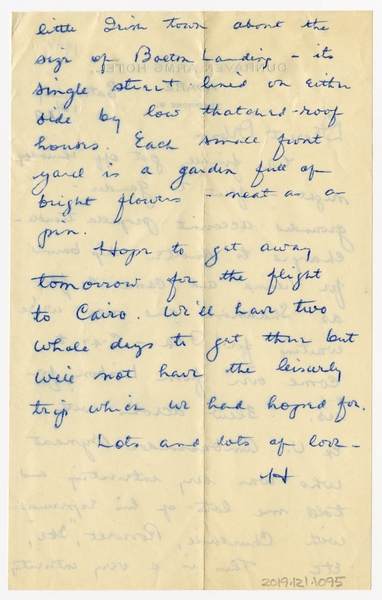 little Irish town about the
size of Bolton Landing - its
single street lined on either
side by low thatched-roof
houses. Each small front
yard is a garden full of
bright flowers - neat as a
pin.
Hope to get away
tomorrow for the flight
to Cairo. We'll have two
whole days to get there but
we'll not have the leisurely
trip which we had hoped for.
Lots and lots of love -
H
2019.121.1095